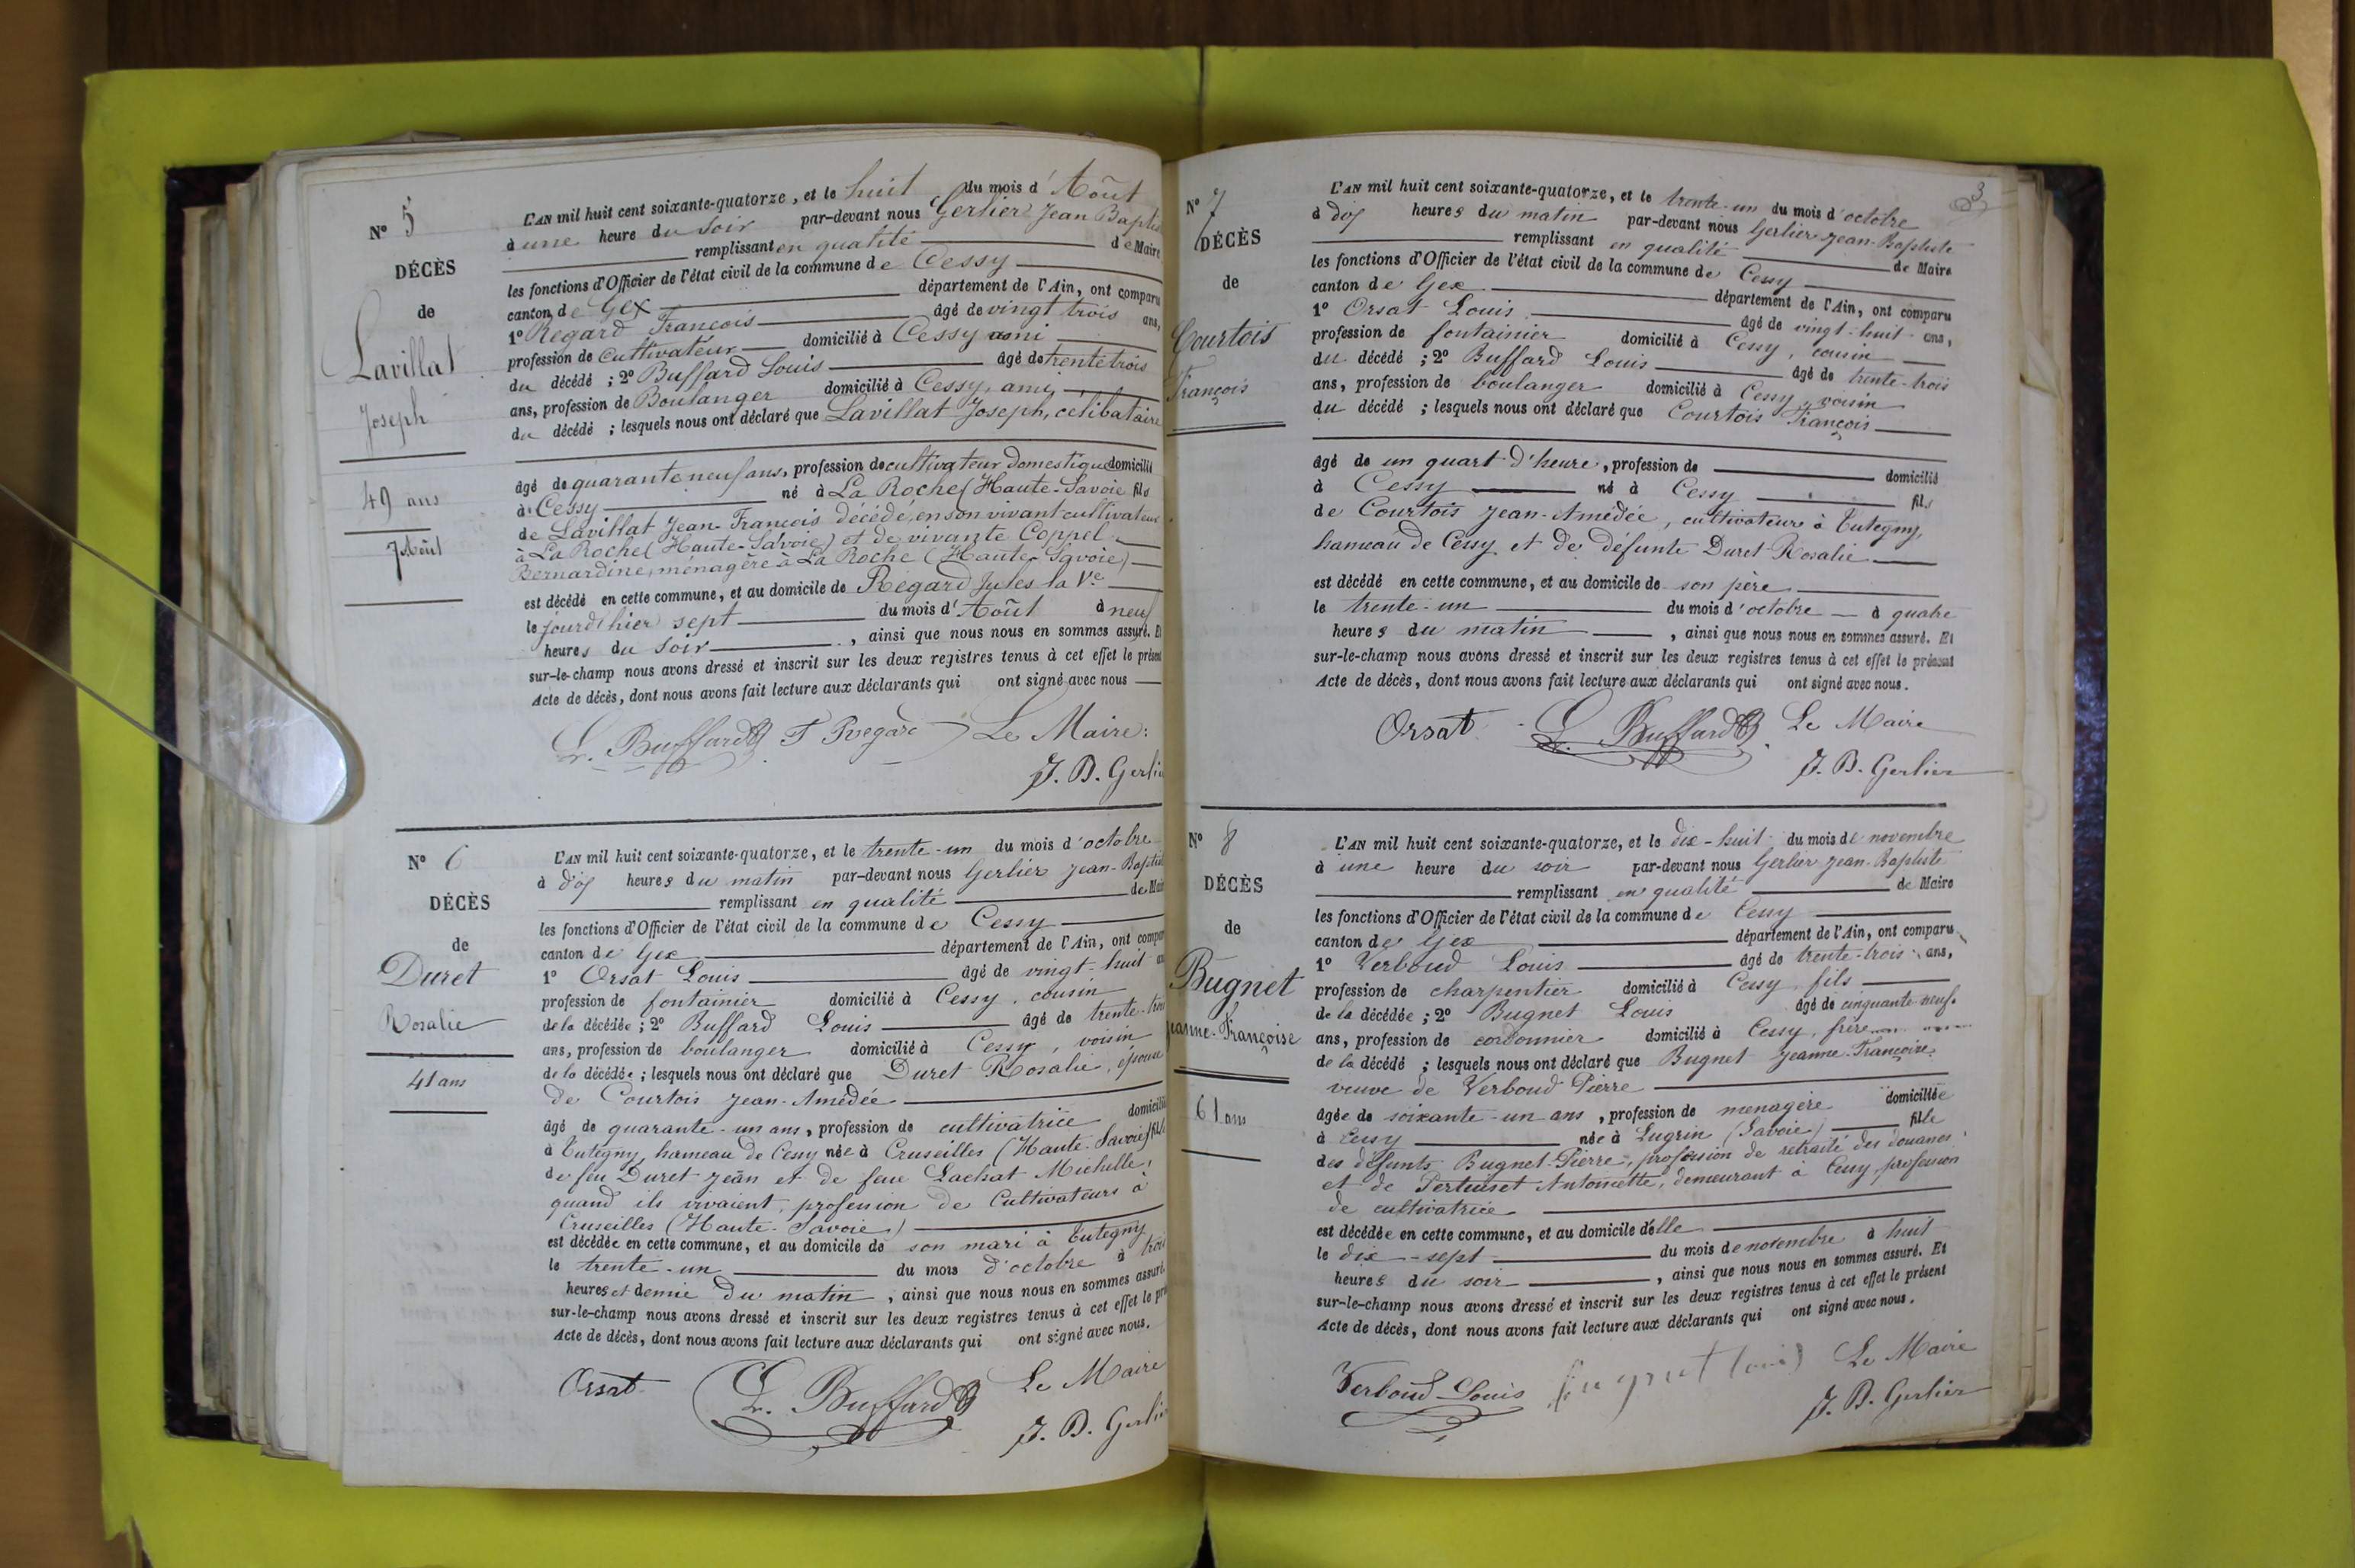 N° 5
DÉCÈS
de
Lavillat
Joseph
49 ans
7 Août
L'AN mil huit cent soixante-quatorze, et le huit du mois d'Août
à une heure du soir par-devant nous Gerlier Jean Baptis
remplissant en qualité de Maire
les fonctions d'Officier de l'état civil de la commune de Cessy
canton de Gex département de l'Ain, ont comparu
1° Regard François âgé de vingt trois ans,
profession de Cultivateur domicilié à Cessy ami
du décédé ; 2° Buffard Louis âgé de trente trois
ans, profession de Boulanger domicilié à Cessy, ami,
du décédé ; lesquels nous ont déclaré que Lavillat Joseph, célibataire
âgé de quarante neuf ans, profession de cultivateur domestique domicilié
à Cessy né à La Roche (Haute-Savoie fils
de Lavillat Jean-François décédé, en son vivant cultivateur
à La Roche (Haute-Savoie) et de vivante Coppel
Bernardine, ménagère à La Roche (Haute-Savoie)
est décédé en cette commune, et au domicile de Regard Jules la Ve
le jourd'hier sept du mois d'Août à neuf
heures du soir, ainsi que nous nous en sommes assuré. Et
sur-le-champ nous avons dressé et inscrit sur les deux registres tenus à cet effet le présent
Acte de décès, dont nous avons fait lecture aux déclarants qui ont signé avec nous
L. Buffard F Regard Le Maire:
J. B. Gerlie
N° 6
DÉCÈS
de
Duret
Rosalie
41 ans
L'AN mil huit cent soixante-quatorze, et le trente-un du mois d'octobre
à dix heures du matin par-devant nous Gerlier Jean-Baptis
remplissant en qualité de Mair
les fonctions d'Officier de l'état civil de la commune de Cessy
canton de Gex département de l'Ain, ont compar
1° Orsat Louis âgé de vingt-huit an
profession de fontainier domicilié à Cessy, cousin
de la décédée ; 2° Buffard Louis âgé de trente-trois
ans, profession de boulanger domicilié à Cessy, voisin
de la décédée ; lesquels nous ont déclaré que Duret Rosalie, épouse
de Courtois Jean-Amédée
âgé de quarante-un ans, profession de cultivatrice domicilié
à Tutegny, hameau de Cessy née à Cruseilles (Haute-Savoie) fille
de feu Duret Jean et de feue Lachat Michelle,
quand ils vivaient, profession de Cultivateurs à
Cruseilles (Haute-Savoie)
est décédée en cette commune, et au domicile de son mari à Tutegny
le trente-un du mois d'octobre à trois
heures et demie du matin, ainsi que nous nous en sommes assuré.
sur-le-champ nous avons dressé et inscrit sur les deux registres tenus à cet effet le pré
Acte de décès, dont nous avons fait lecture aux déclarants qui ont signé avec nous.
Orsat L. Buffard Le Maire
J. B. Gerlie
3
N° 7
DÉCÈS
de
Courtois
François
L'AN mil huit cent soixante-quatorze, et le trente-un du mois d'octobre
à dix heures du matin par-devant nous Gerlier Jean-Baptiste
remplissant en qualité de Maire
les fonctions d'Officier de l'état civil de la commune de Cessy
canton de Gex département de l'Ain, ont comparu
1° Orsat Louis âgé de vingt-huit ans,
profession de fontainier domicilié à Cessy, cousin
du décédé ; 2° Buffard Louis âgé de trente-trois
ans, profession de boulanger domicilié à Cessy, voisin
du décédé ; lesquels nous ont déclaré que Courtois François
âgé de un quart d'heure, profession de domicilié
à Cessy né à Cessy fils
de Courtois Jean-Amédée, cultivateur à Tutegny,
hameau de Cessy et de défunte Duret Rosalie
est décédé en cette commune, et au domicile de son père
le trente-un du mois d'octobre à quatre
heures du matin, ainsi que nous nous en sommes assuré. Et
sur-le-champ nous avons dressé et inscrit sur les deux registres tenus à cet effet le présent
Acte de décès, dont nous avons fait lecture aux déclarants qui ont signé avec nous.
Orsat L. Buffard Le Maire
J. B. Gerlier
N° 8
DÉCÈS
de
Bugnet
Jeanne-Françoise
61 ans
L'AN mil huit cent soixante-quatorze, et le dix-huit du mois de novembre
à une heure du soir par-devant nous Gerlier Jean-Baptiste
remplissant en qualité de Maire
les fonctions d'Officier de l'état civil de la commune de Cessy
canton de Gex département de l'Ain, ont comparu
1° Verboud Louis âgé de trente-trois ans,
profession de charpentier domicilié à Cessy, fils
de la décédée ; 2° Bugnet Louis âgé de cinquante-neuf
ans, profession de cordonnier domicilié à Cessy, frère
de la décédé ; lesquels nous ont déclaré que Bugnet Jeanne-Françoise,
veuve de Verboud Pierre
âgée de soixante-un ans, profession de menagère domiciliée
à Cessy née à Lugrin (Savoie) fille
des défunts Bugnet Pierre, profession de retraité des douanes
et de Pertuiset Antoinette, demeurant à Cessy, profession
de cultivatrice
est décédée en cette commune, et au domicile d'elle
le dix-sept du mois de novembre à huit
heures du soir, ainsi que nous nous en sommes assuré. Et
sur-le-champ nous avons dressé et inscrit sur les deux registres tenus à cet effet le présent
Acte de décès, dont nous avons fait lecture aux déclarants qui ont signé avec nous.
Verboud Louis Bugnet Louis Le Maire
J. B. Gerlier